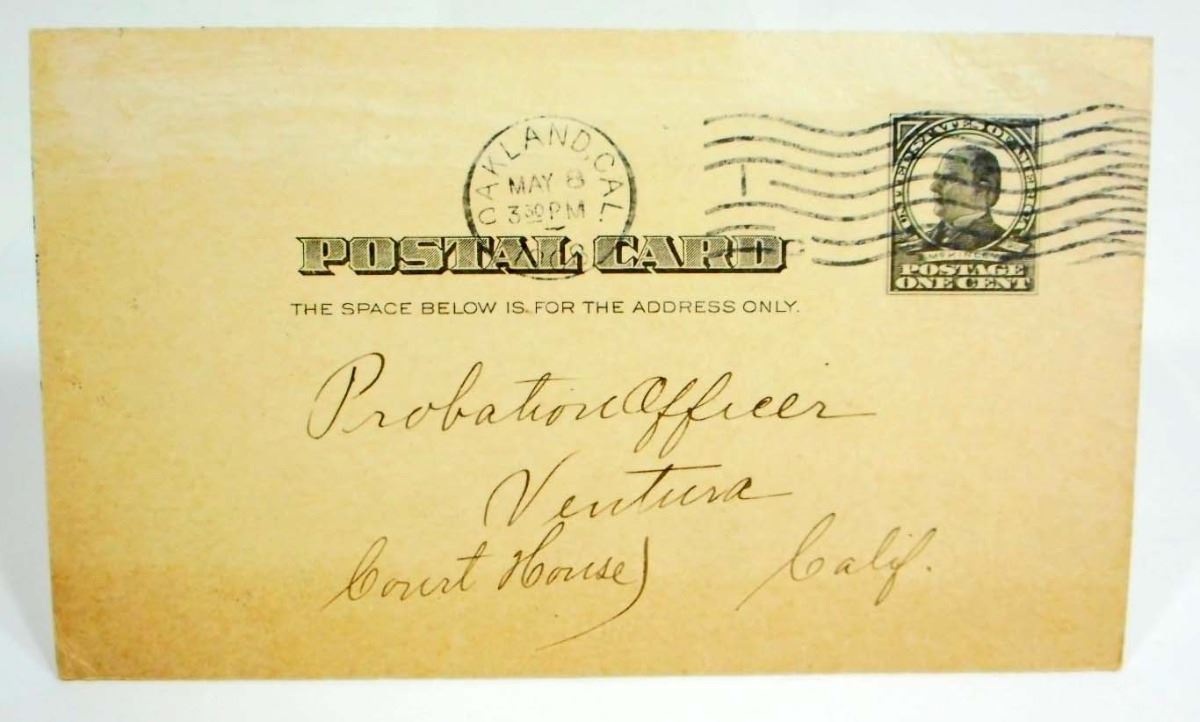 OAKLAND, CAL.
MAY 8
3 30 PM
1
UNITED STATES OF AMERICA
McKINLEY
POSTAGE
ONE CENT
POSTAL CARD
THE SPACE BELOW IS FOR THE ADDRESS ONLY.
Probation Officer
Ventura
Court House) Calif.